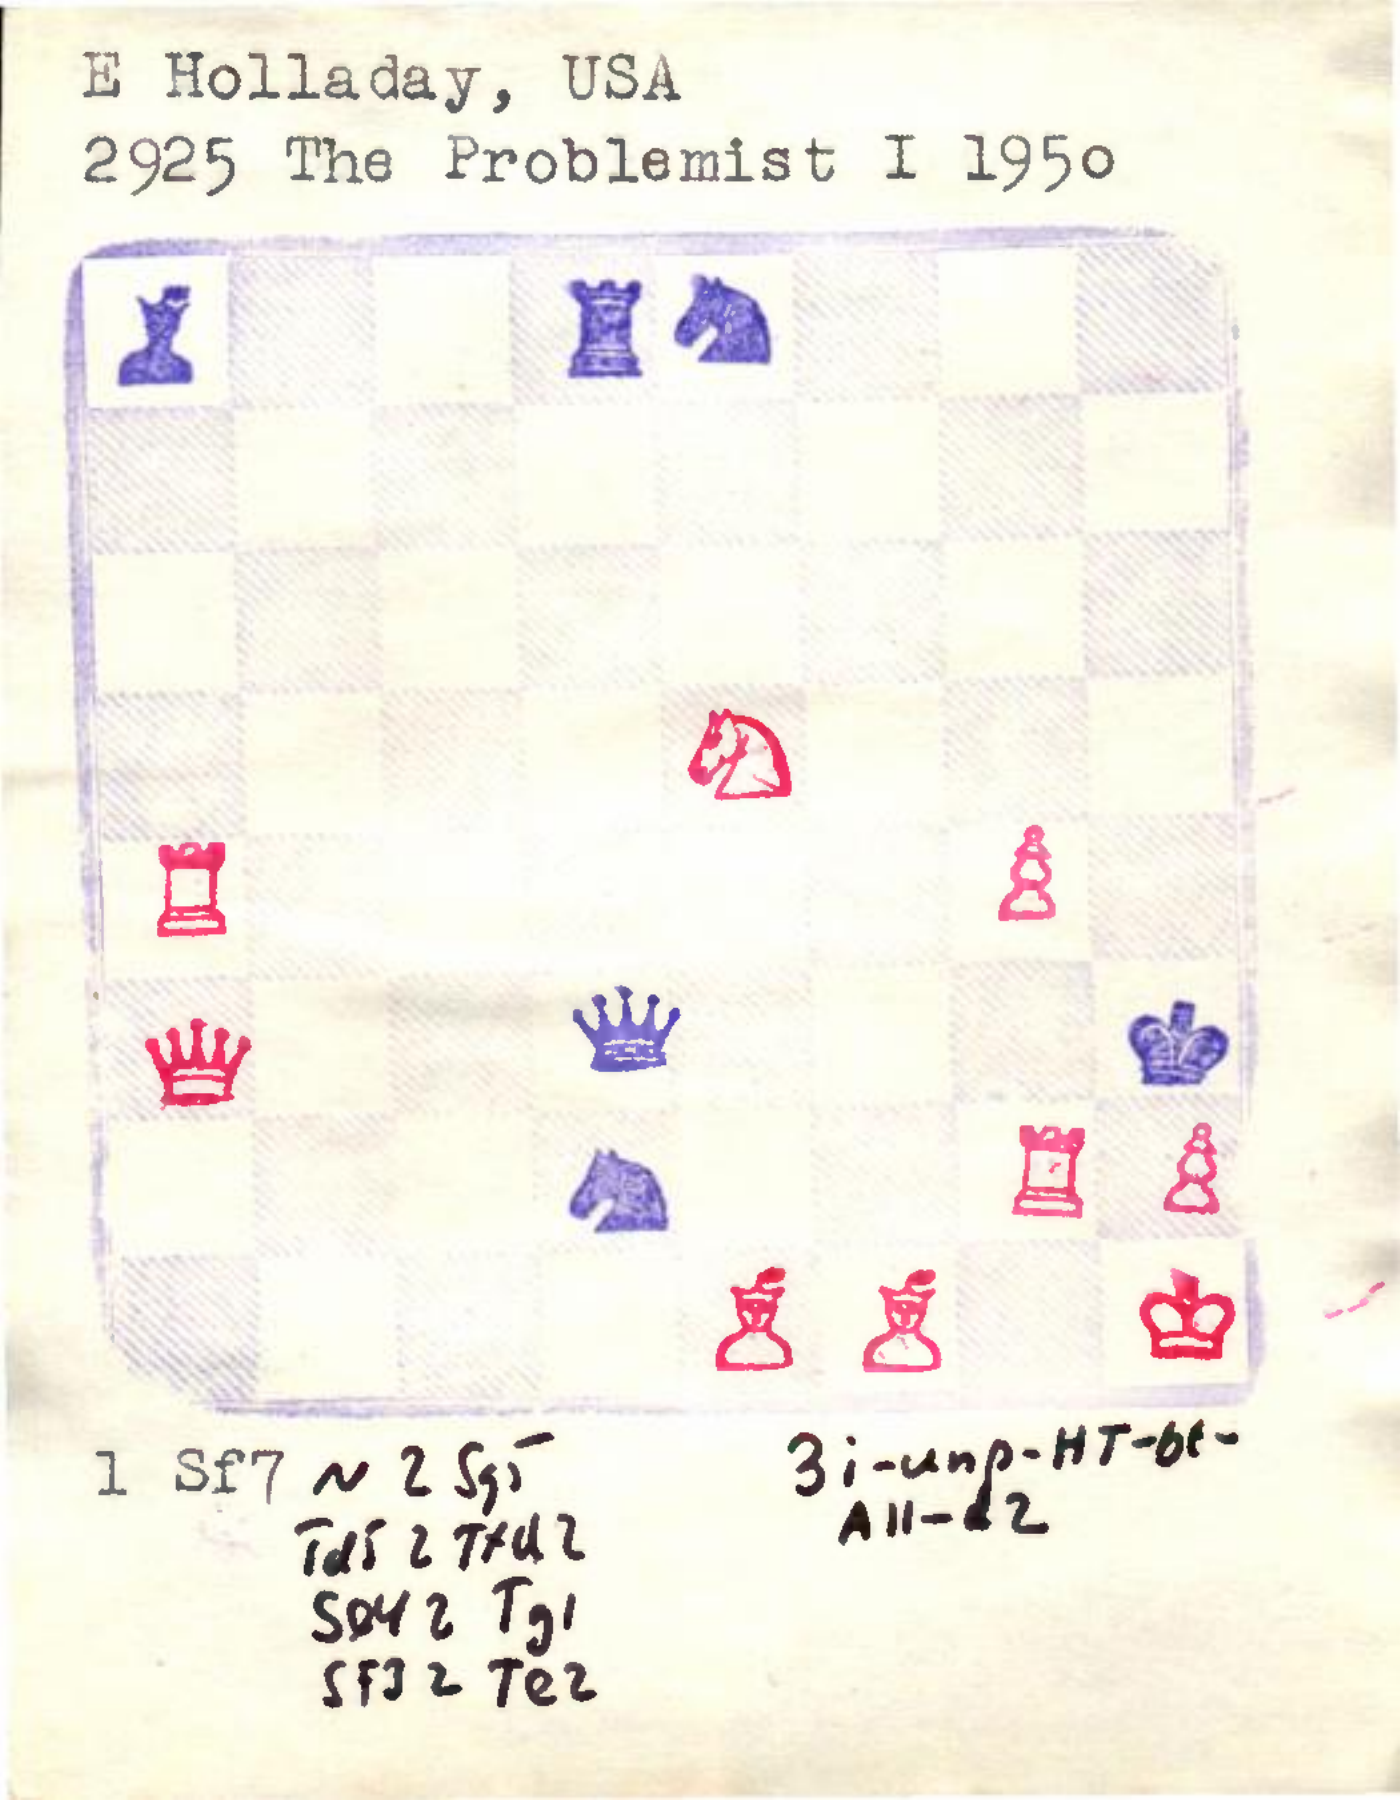 E Holladay, USA
2925 The Problemist I 1950
1 Sf7 ~ 2 Sg5
Td5 2 Txd2
Se4 2 Tg1
Sf3 2 Te2
3i-unp-HT-bt-
All-d2